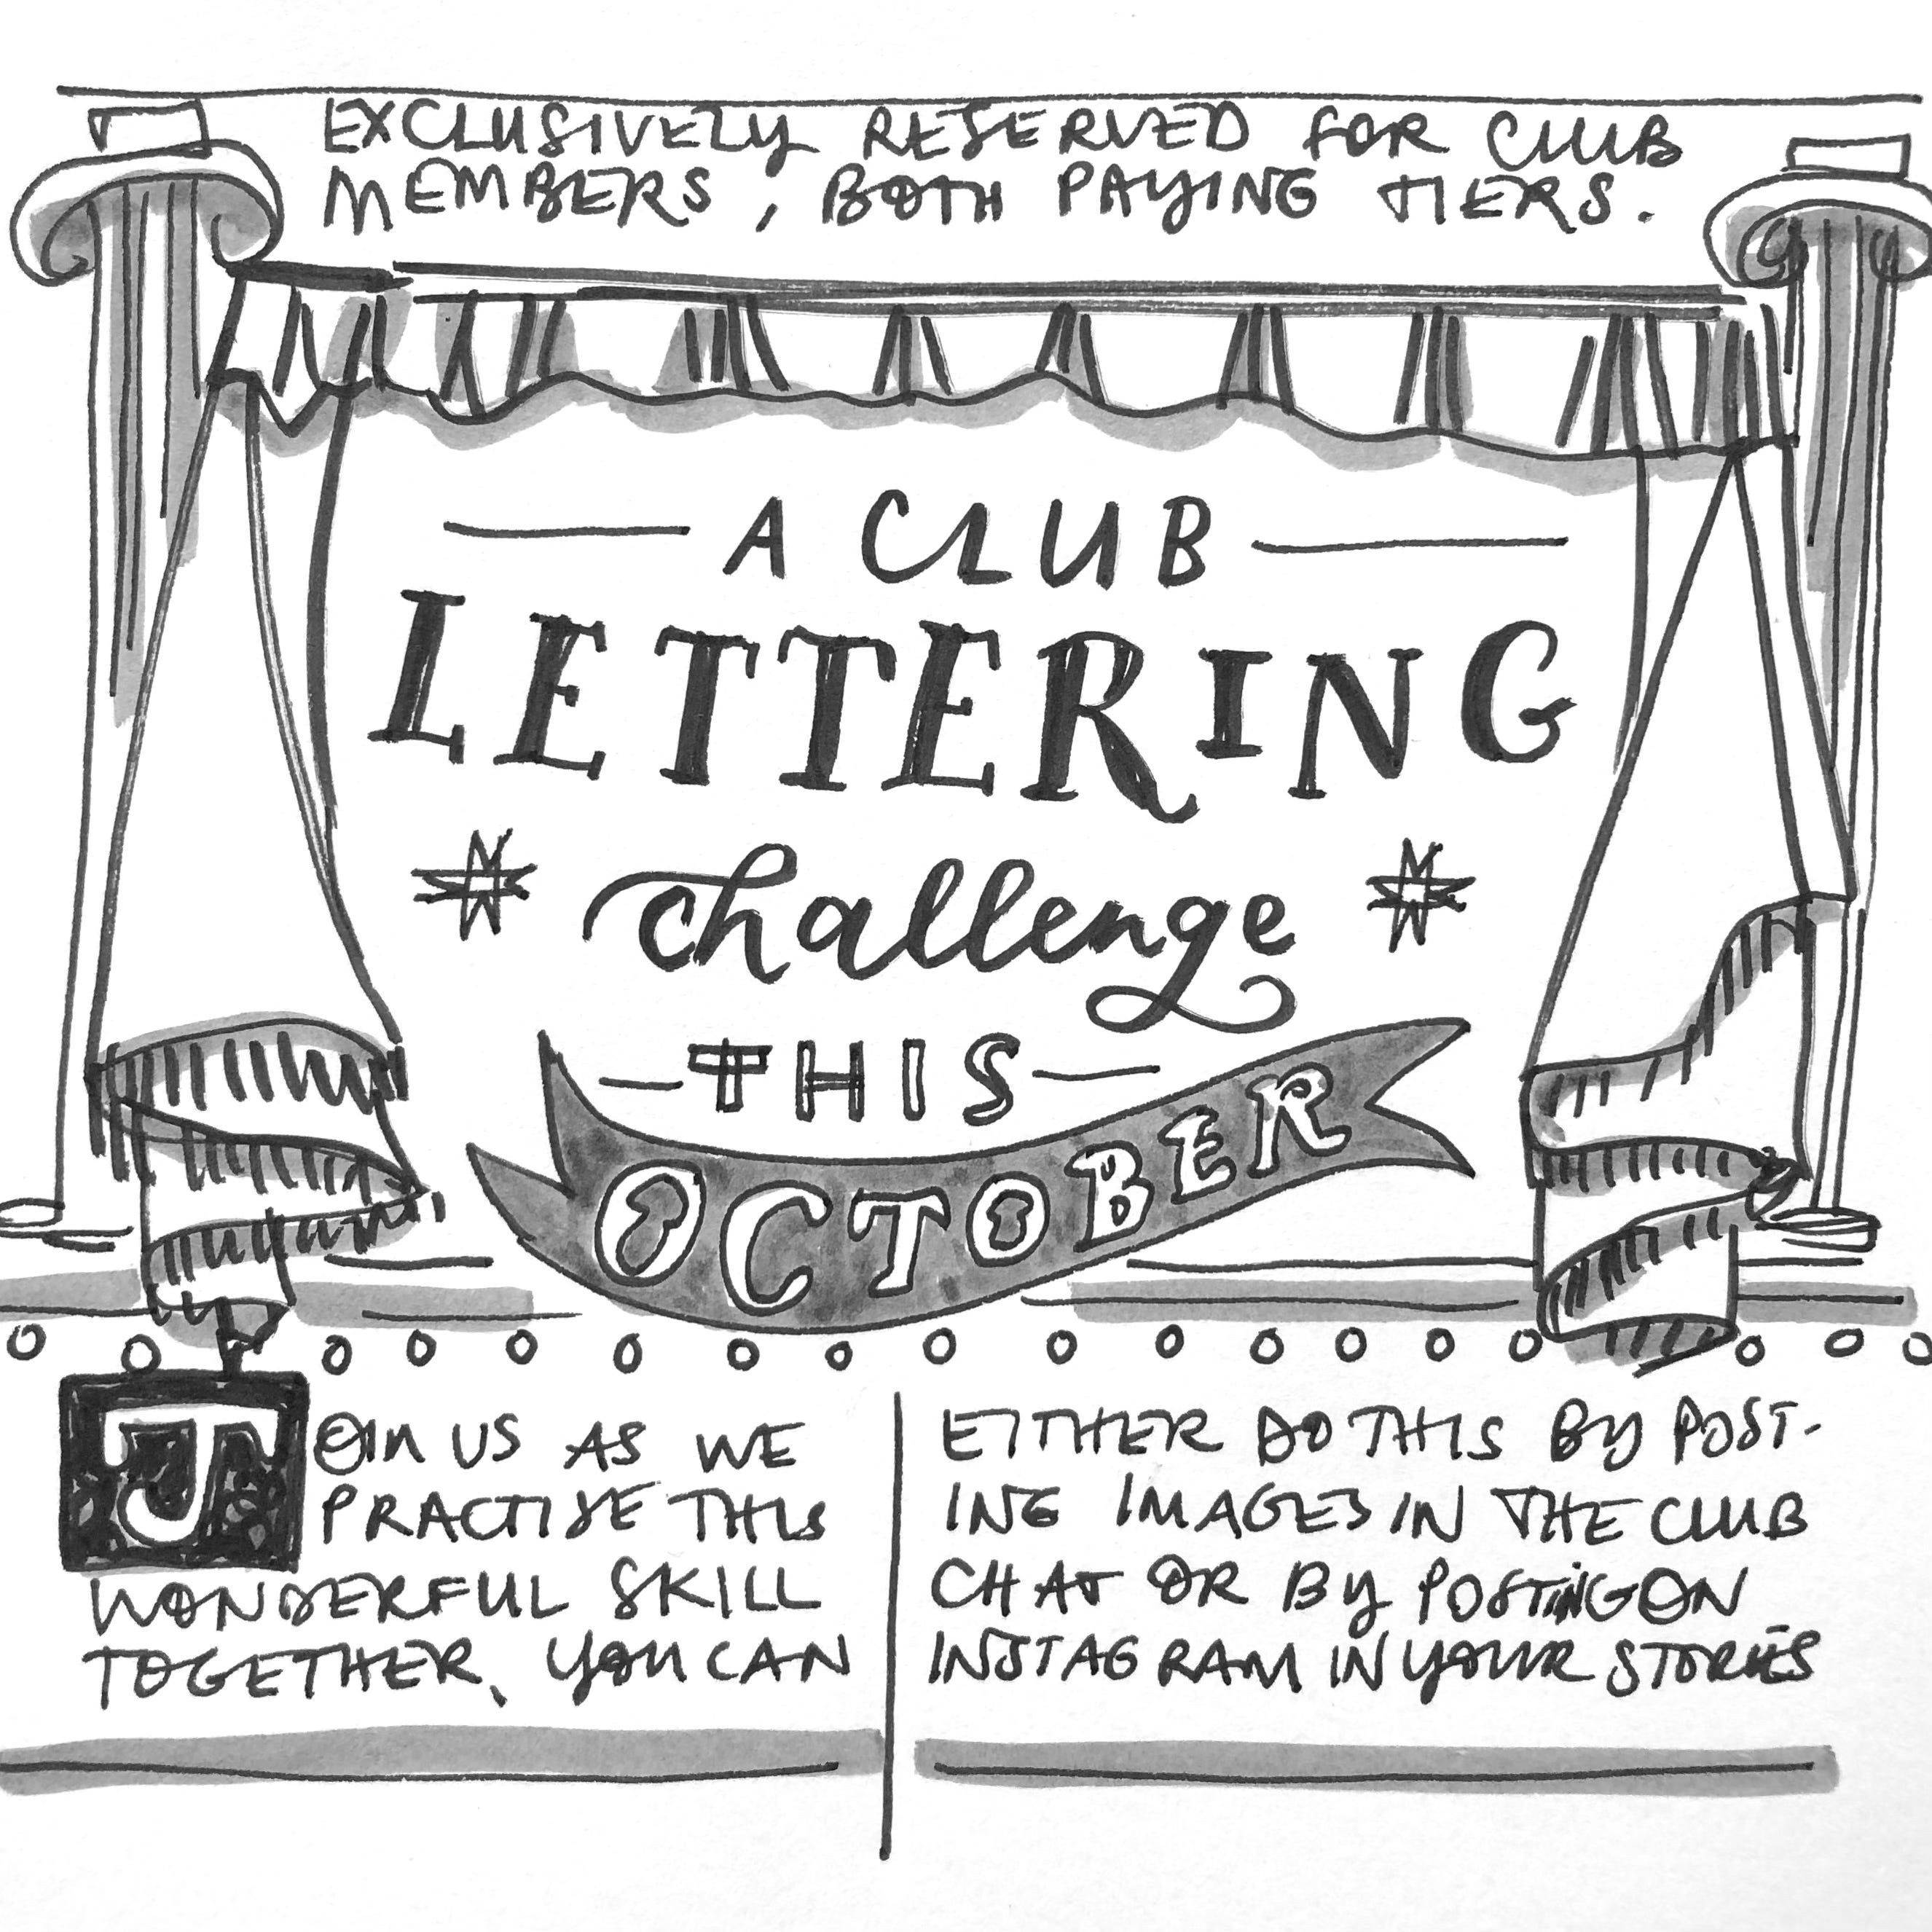 EXCLUSIVELY RESERVED FOR CLUB
MEMBERS, BOTH PAYING TIERS.
A CLUB
LETTERING
challenge
THIS
OCTOBER
JOIN US AS WE
PRACTISE THIS
WONDERFUL SKILL
TOGETHER, YOU CAN
EITHER DO THIS BY POST-
ING IMAGES IN THE CLUB
CHAT OR BY POSTING ON
INSTAGRAM IN YOUR STORIES